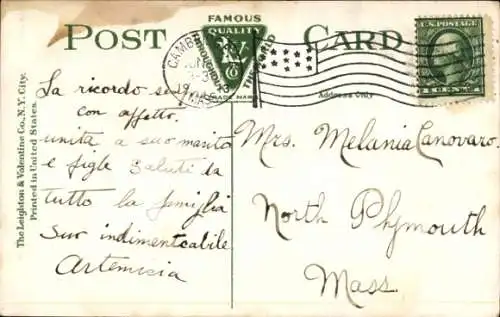 FAMOUS
POST CARD
QUALITY
THROUGHOUT THE WORLD
TRADE MARK
CAMB
MASS
U.S. POSTAGE
Address Only
The Leighton & Valentine Co., N.Y. City.
Printed in United States.
La ricordo sempre
con affetto.
unita a suo marito
e figle Saluti da
tutto la famiglia
Sur indimenticabile
Artemisia
Mrs. Melania Canovaro.
North Plymouth
Mass